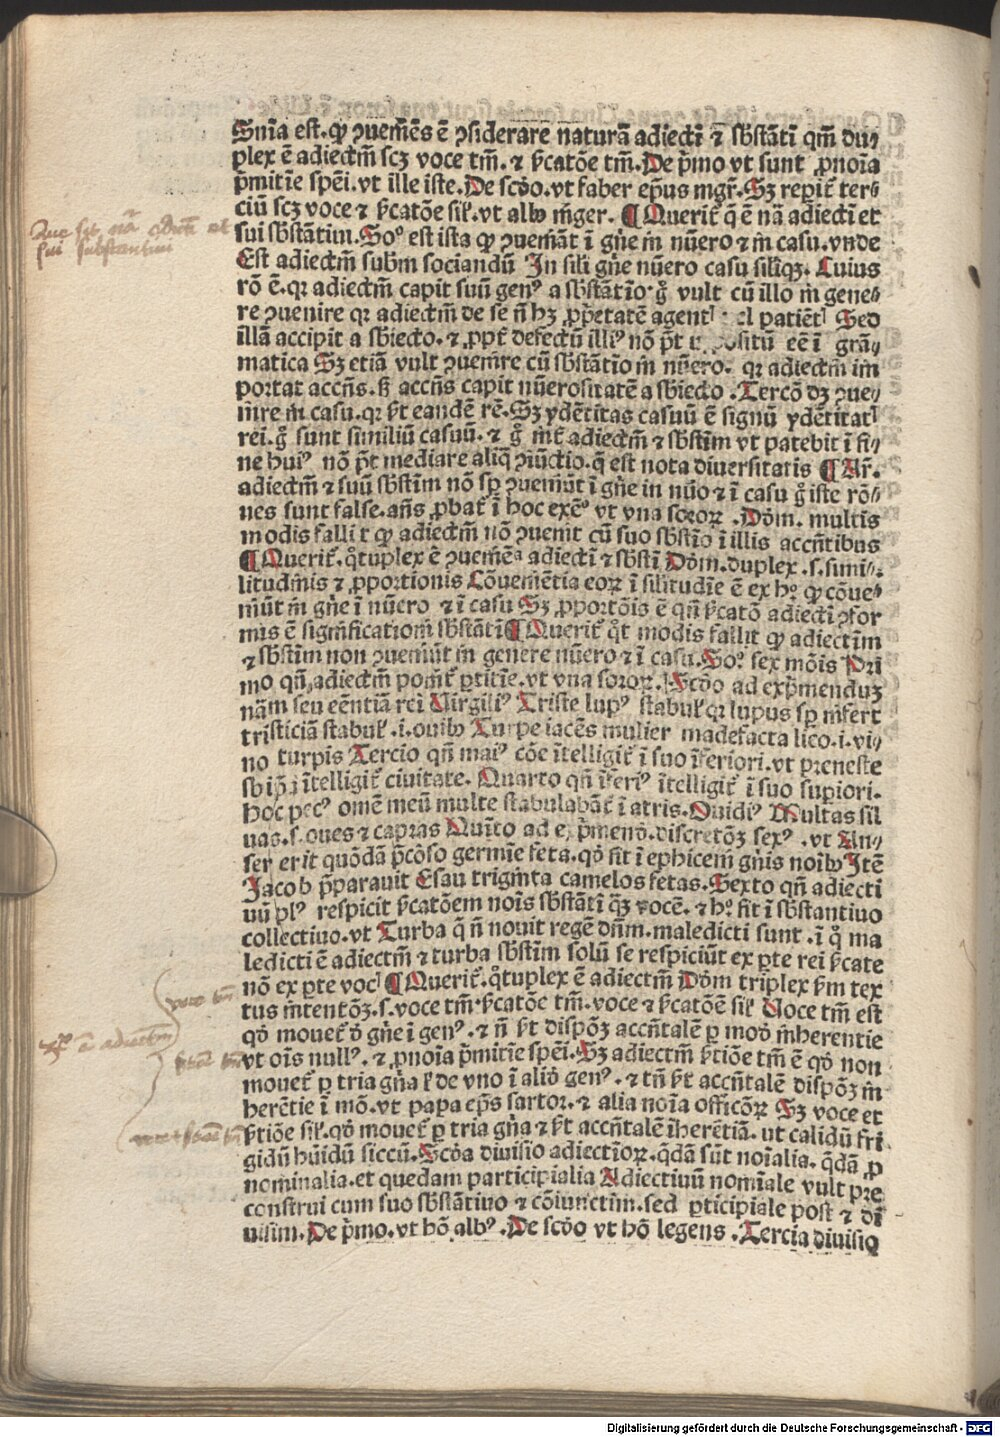 Snīa est. ꝙ ꝯuemēs ē ꝯsiderare naturā adiecti ⁊ sb̄stāti qm̄ du⸗
plex ē adiectm̄ scꝫ voce tm̄. ⁊ sc̄atōe tm̄. De p̄mo vt sunt ꝓnoīa
p̄mitīe spēi. vt ille iste. De scd̓o. vt faber ep̄us mgr̄. Sꝫ reperit ter⸗
ciū scꝫ voce ⁊ sc̄atōe sil̓. vt albꝰ niger. ¶ Querit̄ q̄ ē nā adiecti et
sui sb̄stātim. Soꝰ est ista ꝙ ꝯuemāt ī gn̄e in nūero ⁊ in casu. vnde
Est adiectm̄ subm̄ sociandū In sili gn̄e nūero casu siliqꝫ. Cuius
rō ē. qꝛ adiectm̄ capit suū genꝰ a sb̄stātīo. gͦ vult cū illo in gene⸗
re ꝯuenire qꝛ adiectm̄ de se nō hꝫ ꝓprietatē agent vel patiēt Sed
illā accipit a sb̄iecto. ⁊ ꝓpt̄ defectū illiꝰ nō pōt suppositū eē ī grā⸗
matica Sꝫ etiā vult ꝯuenire cū sb̄stātīo in nūero. qꝛ adiectm̄ im
portat accn̄s. sꝫ accn̄s capit nūerositatē a sb̄iecto. Tercō dꝫ ꝯue⸗
nire in casu. qꝛ sc̄t eandē rē. Sꝫ ydētitas casuū ē signū ydētitat
rei. gͦ sunt similiū casuū. ⁊ gͦ int̄ adiectm̄ ⁊ sb̄stīm vt patebit ī fi⸗
ne huiꝰ nō pōt mediare aliq̄ ꝯiūctio. q̄ est nota diuersitatis ¶ Ar̄.
adiectm̄ ⁊ suū sb̄stīm nō sp̄ ꝯueniūt ī gn̄e in nūo ⁊ ī casu gͦ iste rō⸗
nes sunt false. an̄s ꝓbat̄ ī hoc exēꝰ vt vna soroꝝ. Dōm. multis
modis fallit ꝙ adiectm̄ nō ꝯuenit cū suo sb̄stīo ī illis accn̄tibus
¶ Querit̄. qͣtuplex ē ꝯuemēᵃ adiecti ⁊ sb̄stī Dōm. duplex. s. simi⸗
litudinis ⁊ ꝓportionis Cōueniētia eoꝝ ī silitudīe ē ex hͦ ꝙ cōue⸗
niūt in gn̄e ī nūero ⁊ ī casu Sꝫ ꝓportōis ē qn̄ sc̄atō adiecti ꝯfor
mis ē significationi sb̄stāti ¶ Querit̄ qͦt modis fallit ꝙ adiectīm
⁊ sb̄stīm non ꝯueniūt in genere nūero ⁊ ī casu. Soꝰ sex mōis Pri
mo qn̄ adiectm̄ ponit̄ ꝑtitīe. vt vna soroꝝ. Scd̓o ad exp̄menduꝫ
nām seu eēntiā rei Virgiliꝰ Triste lupꝰ stabul̓ qꝛ lupus sp̄ infert
tristiciā stabul̓. i. ouibꝰ Turpe iacēs mulier madefacta lieo. i. vi⸗
no turpis Tercio qn̄ maiꝰ cōe ītelligit̄ ī suo īferiori. vt preneste
sb ip̄a ītelligit̄ ciuitate. Quarto qn̄ īferiꝰ ītelligit̄ ī suo superiori.
hoc pecꝰ omē meū multe stabulabāt̄ ī atris. Ouidiꝰ Multas sil
uas. s. oues ⁊ capras Quīto ad exp̄mend̓. discretōꝫ sexꝰ. vt An⸗
ser erit quōdā p̄cōso germīe feta. qd̓ fit ī ephicenis gn̄is noībꝰ Itē
Jacob p̄parauit Esau triginta camelos fetas. Sexto qn̄ adiecti
uū plꝰ respicit sc̄atōem noīs sb̄stāti qꝫ vocē. ⁊ hͦ fit ī sb̄stantiuo
collectiuo. vt Turba q̄ nō nouit regē dn̄m. maledicti sunt. ī qͦ ma
ledicti ē adiectm̄ ⁊ turba sb̄stīm solū se respiciūt ex ꝑte rei sc̄ate
nō ex ꝑte voc ¶ Querit̄. qͣtuplex ē adiectm̄ Dōm triplex sm̄ tex
tus intentōꝫ. s. voce tm̄. sc̄atōe tm̄. voce ⁊ sc̄atōē sil̓ Voce tm̄ est
qd̓ mouet̄ d̓ gn̄e ī genꝰ. ⁊ nō sc̄t dispōꝫ accn̄talē ꝑ mod̓ inherentie
vt oīs nullꝰ. ⁊ ꝓnoīa p̄mitīe spēi. Sꝫ adiectm̄ sc̄tiōe tm̄ ē qd̓ non
mouet̄ ꝑ tria gn̄a sꝫ de vno ī aliud̓ genꝰ. ⁊ tn̄ sc̄t accn̄talē dispōꝫ in
herētie ī mō. vt papa ep̄s sartor. ⁊ alia noīa officōꝝ Sꝫ voce et
sc̄tiōe sil̓. qd̓ mouet̄ ꝑ tria gn̄a ⁊ sc̄t accn̄talē īherētiā. ut calidū fri
gidū hūidū siccū. Scd̓a diuisio adiectiōꝝ. qdā sūt noīalia. qdā ꝓ
nominalia. et quedam participialia Adiectiuū nomīale vult pre
construi cum suo sb̄stātiuo ⁊ cōiunctim. sed ꝑticipiale post ⁊ di
uisim. De p̄mo. vt hō albꝰ. De scd̓o vt hō legens. Tercia diuisio
Que sit nā adiecti et
sui substantiui
voce tm̄
adiectm̄